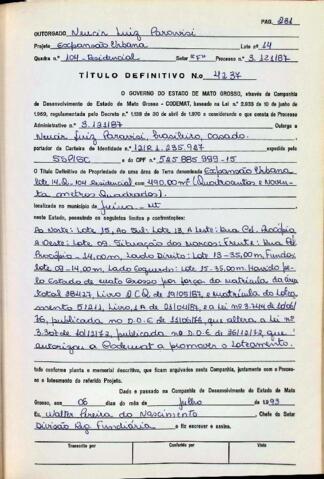 PAG. 231
OUTORGADO Neucir Luiz Paravisi
Projeto Expansão Urbana Lote n.º 14
Quadra n.º 104-Residencial Setor "F" Processo n.º 3.121/87
TÍTULO DEFINITIVO N.o 4237
O GOVERNO DO ESTADO DE MATO GROSSO, através da Companhia
de Desenvolvimento do Estado de Mato Grosso - CODEMAT, baseado na Lei n.º 2.933 de 10 de junho
de 1969, regulamentada pelo Decreto n.º 1.138 de 20 de abril de 1970 e considerando o que consta do Processo
Administrativo n.º 3.121/87 Outorga a
Neucir Luiz Paravisi, brasileiro, casado.
portador da Carteira de Identidade n.º 12/R 1.235.987 expedida pelo
SSP/SC e do CPF n.º 525.885.999-15
O Título Definitivo de Propriedade de uma área de Terra denominada Expansão Urbana
lote 14 Q. 104 residencial com 490,00m² (Quatrocentos e Noven-
ta metros Quadrados).
localizada no município de Juína - MT
neste Estado, possuindo os seguintes limites e confrontações:
Ao Norte: Lote 15, Ao Sul: Lote 13, A Leste: Rua Pe. Procópio
A Oeste: Lote 09. Situação dos marcos: Frente: Rua Pe.
Procópio - 14,00m, Lado Direito: Lote 13 - 35,00m, Fundos:
Lote 09 - 14,00m, Lado Esquerdo: Lote 15 - 35,00m. Havido pe-
lo Estado de Mato Grosso por força da matrícula da área
total 28427, Livro
mento 5121, Livro
76, publicada no D.O.E de que altera a Lei nº
3.307 de 10/12/72, publicada no D.O.E. de 26/12/72, que
autorizou a Codemat a promover o Loteamento.
tudo conforme planta e memorial descritivo, que ficam arquivados nesta Companhia, juntamente com o Proces-
so e loteamento do referido Projeto.
Dado e passado na Companhia de Desenvolvimento do Estado de Mato
Grosso, em 06 dias do mês de Julho de 1993
Eu, Walter Pereira do Nascimento Chefe do Setor
Divisão Reg Fundiária e fiz escrever e assino.
Transcrito por Conferido por Visto